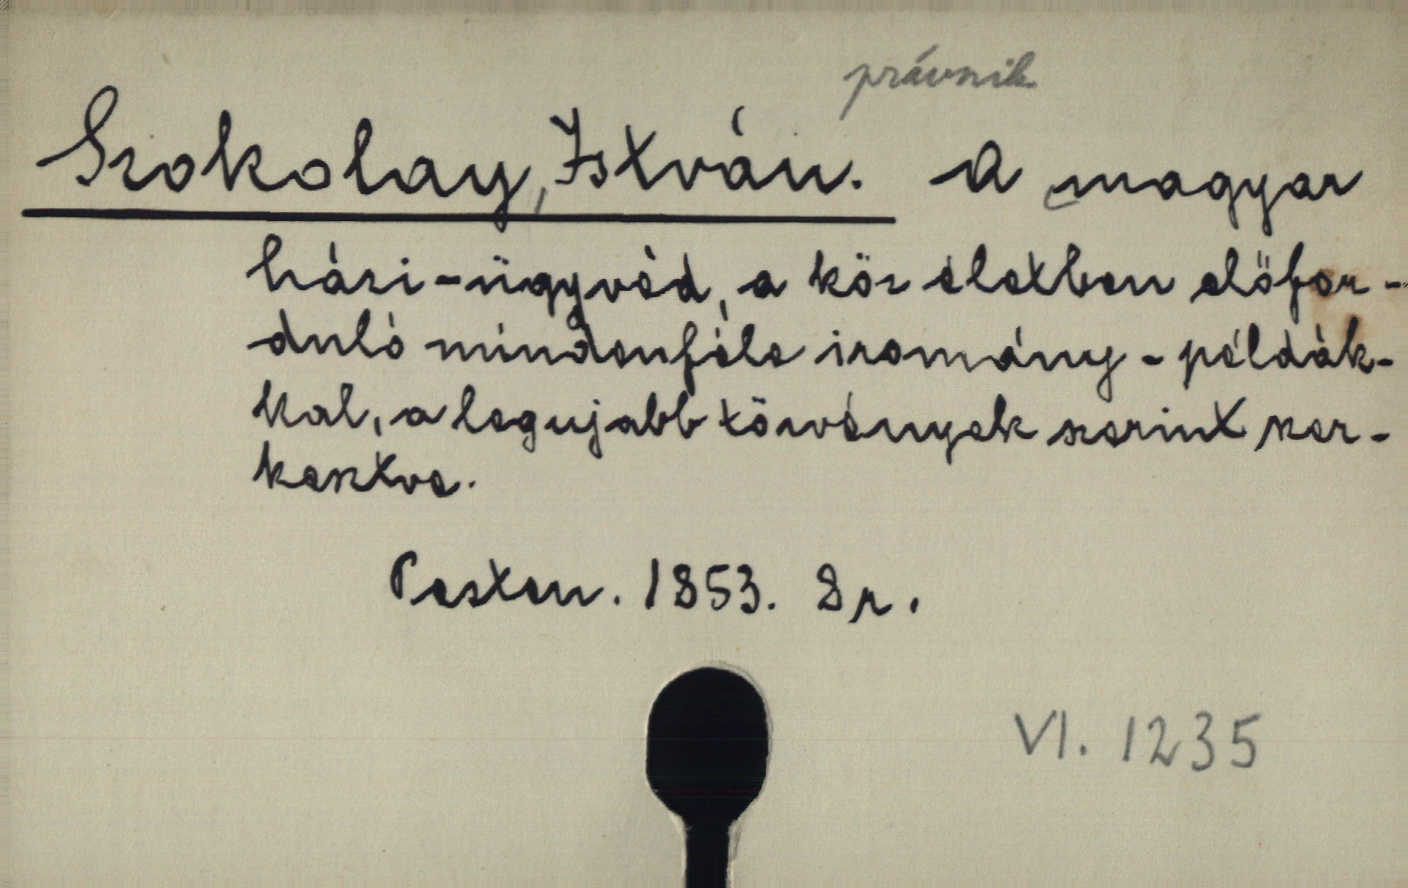 právnik
Szokolay, István. A magyar
házi-ügyvéd, a köz életben előfor-
duló mindenféle iromány-példák-
kal, a legujabb törvények szerint szer-
kesztve.
Pesten. 1853. 8r.
VI. 1235